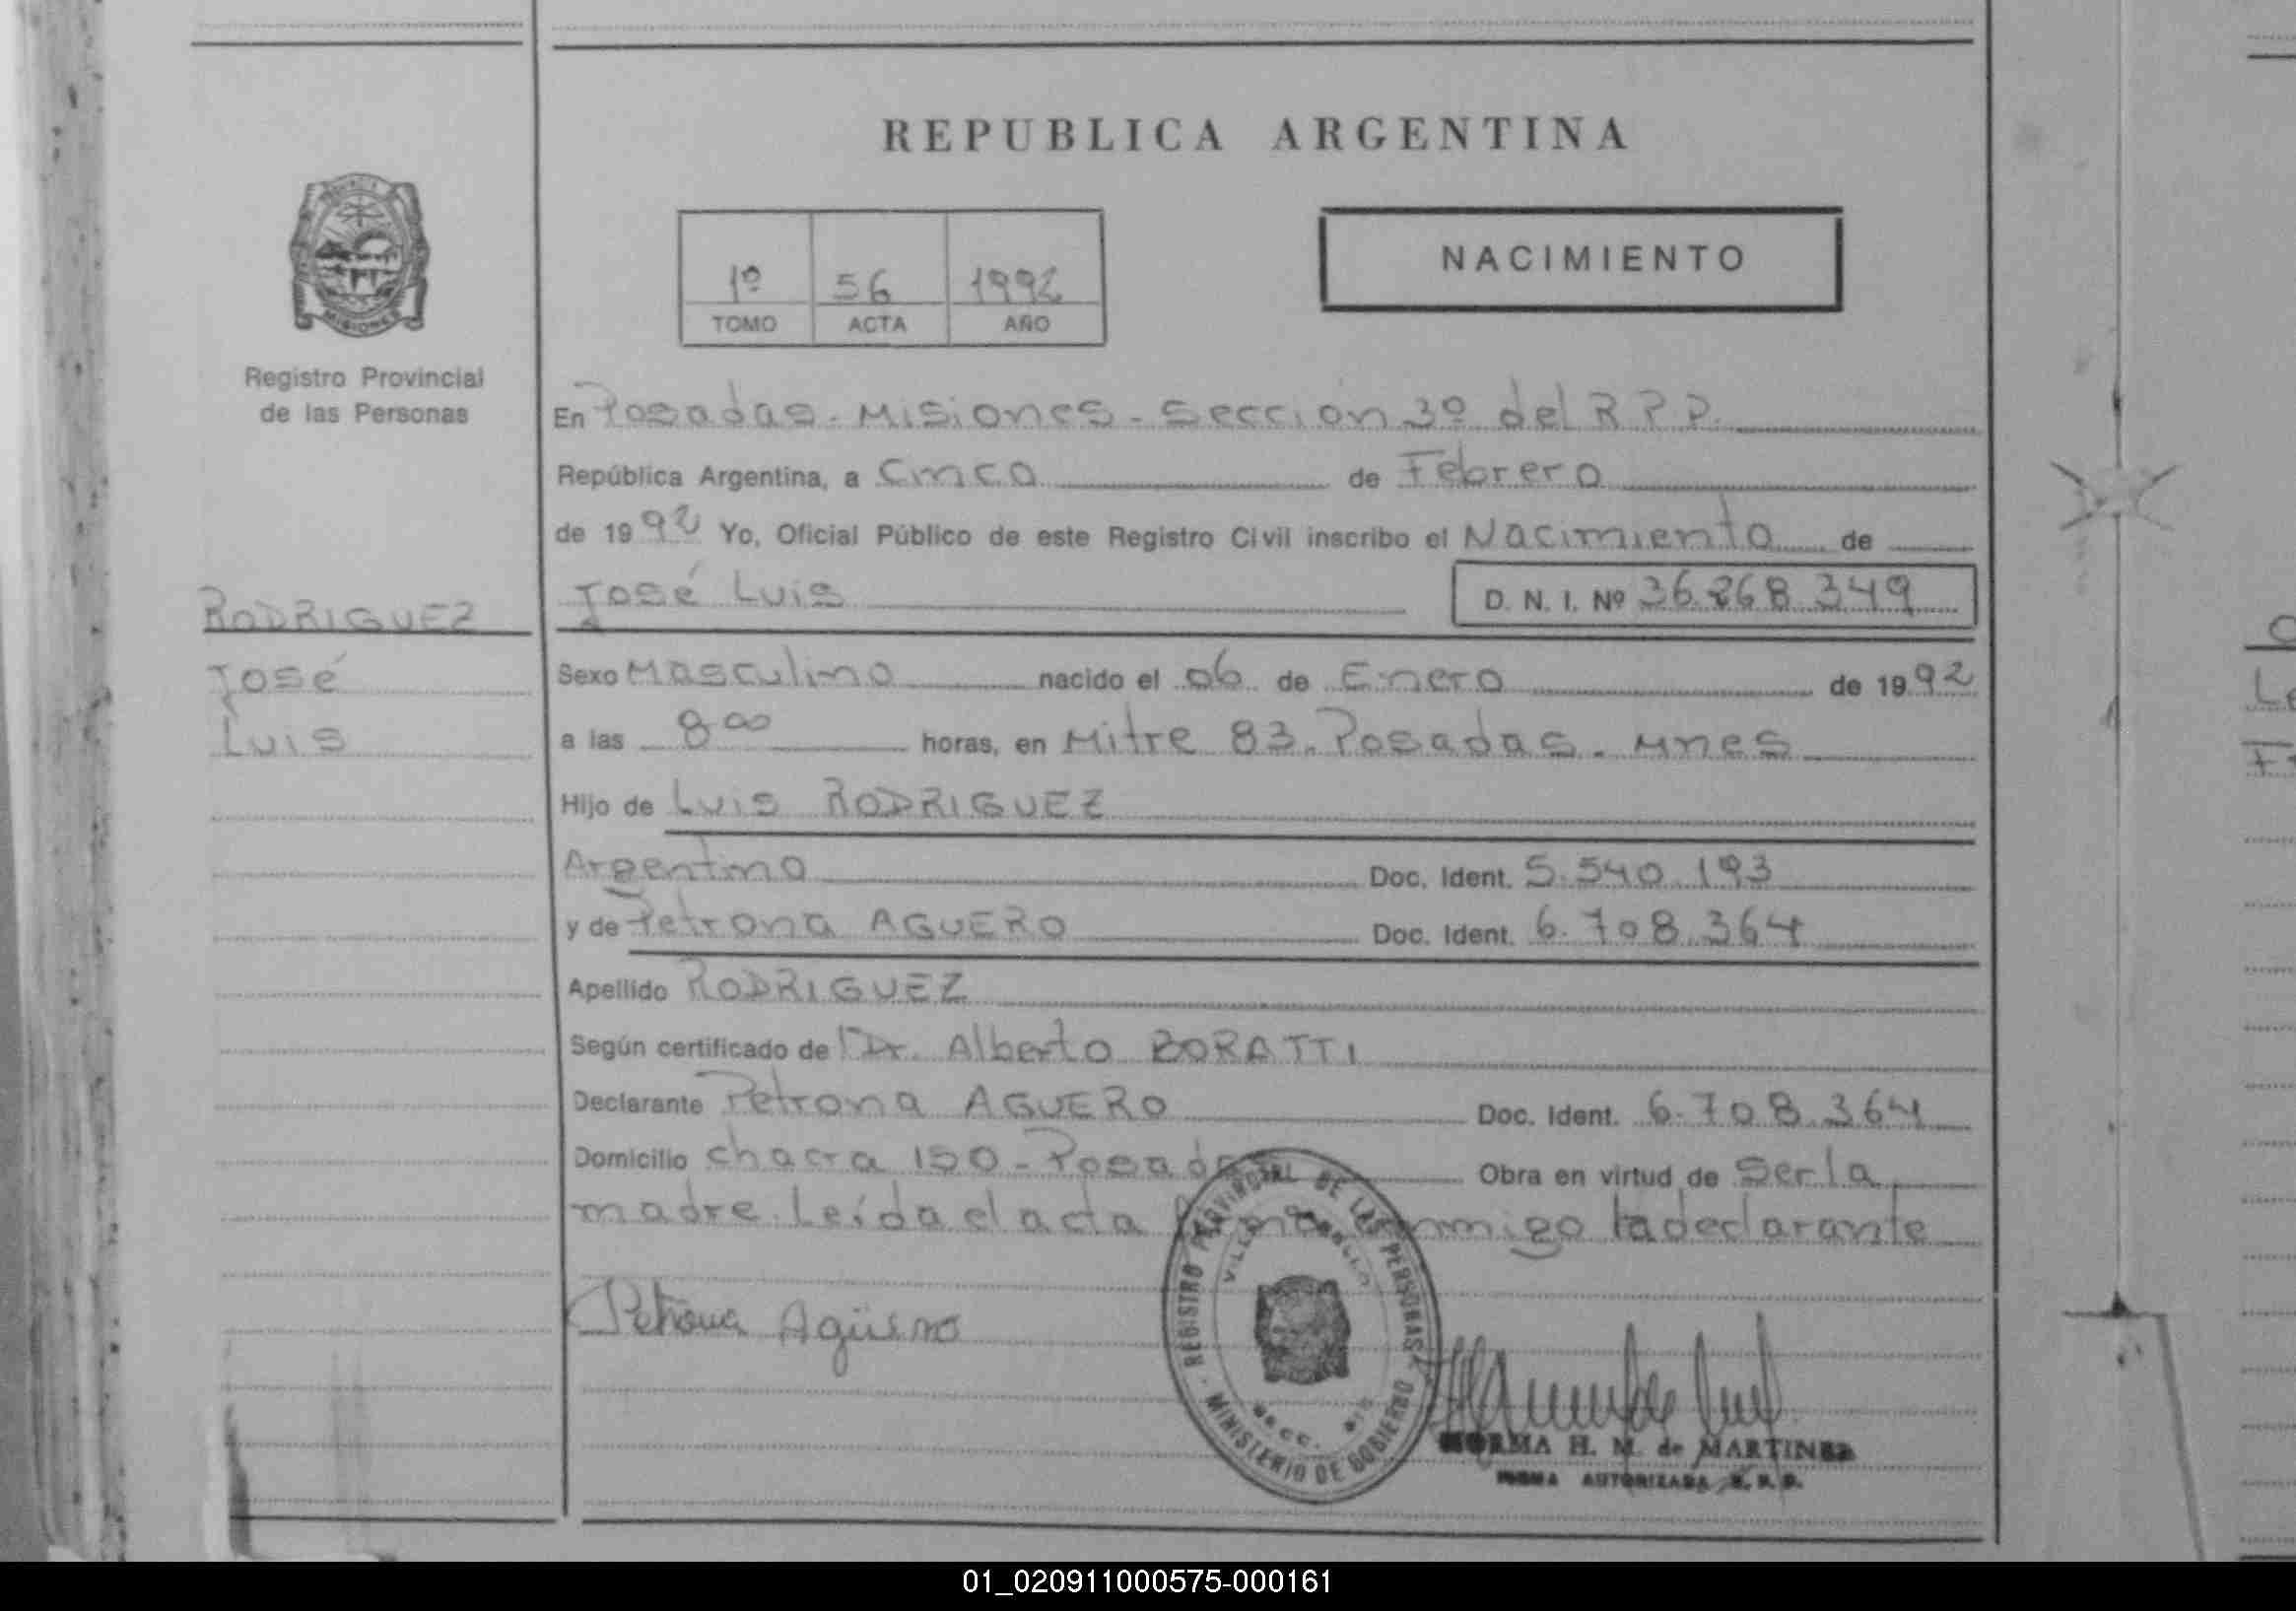 REPUBLICA ARGENTINA
NACIMIENTO
1º 56 1992
TOMO ACTA AÑO
MISIONES
Registro Provincial
de las Personas
En Posadas - Misiones - Sección 3º del R.P.P.
República Argentina, a Cinco de Febrero
de 1992 Yo, Oficial Público de este Registro Civil inscribo el Nacimiento de
RODRIGUEZ
José Luis D. N. I. Nº 36.868.349
José
Luis
Sexo Masculino nacido el 06 de Enero de 1992
a las 8 00 horas, en Mitre 83. Posadas. Mnes
Hijo de Luis RODRIGUEZ
Argentino Doc. Ident. 5.540.193
y de Petrona AGUERO Doc. Ident. 6.708.364
Apellido RODRIGUEZ
Según certificado de Dr. Alberto BORATTI
Declarante Petrona AGUERO Doc. Ident. 6.708.364
Domicilio chacra 150 - Posadas Obra en virtud de Ser la
madre. Leída el acta firma conmigo la declarante
Petrona Agüero
REGISTRO PROVINCIAL DE LAS PERSONAS
VILLA
SECC.
MINISTERIO DE GOBIERNO
NORMA H. M. de MARTINEZ
FIRMA AUTORIZADA R. P. P.
01_020911000575-000161